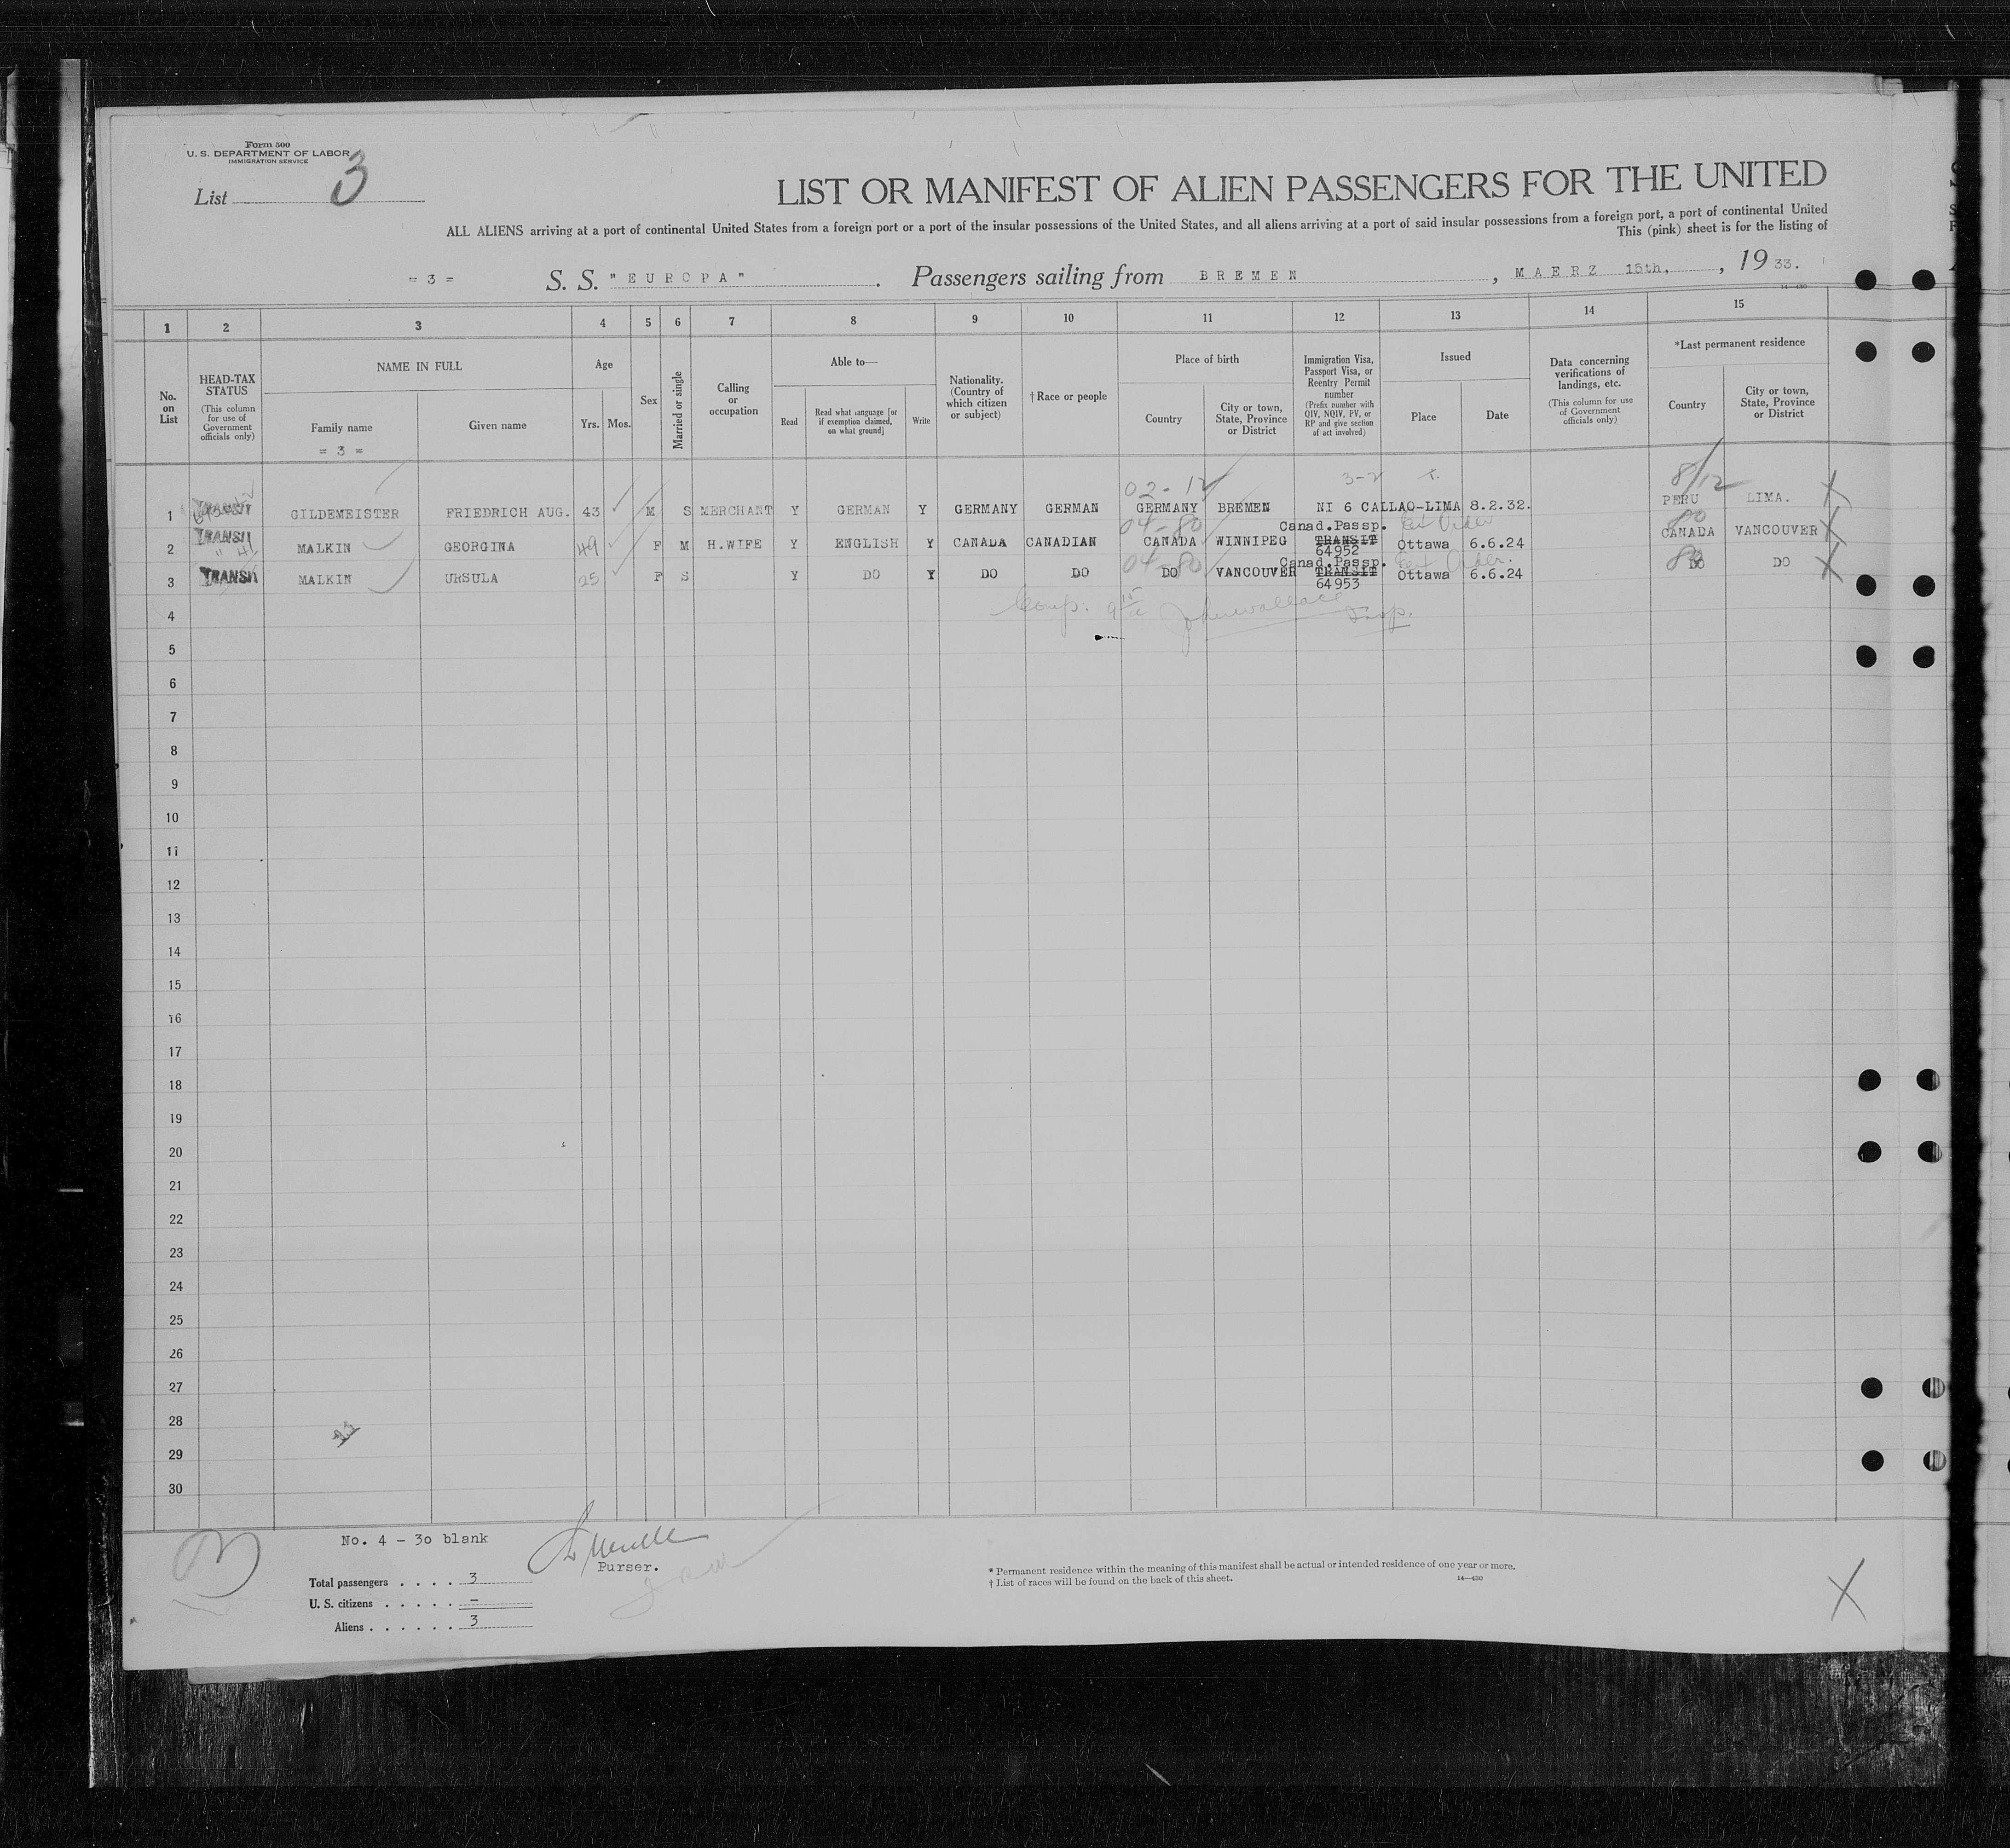 Form 500
U. S. DEPARTMENT OF LABOR
IMMIGRATION SERVICE
List 3
LIST OR MANIFEST OF ALIEN PASSENGERS FOR THE UNITED
ALL ALIENS arriving at a port of continental United States from a foreign port or a port of the insular possessions of the United States, and all aliens arriving at a port of said insular possessions from a foreign port, a port of continental United
This (pink) sheet is for the listing of
= 3 = S. S. "EUROPA". Passengers sailing from BREMEN, MAERZ 15th, , 19 33.
14—430
1 2 3 4 5 6 7 8 9 10 11 12 13 14 15
No. on List
HEAD-TAX STATUS
(This column for use of Government officials only)
NAME IN FULL
Family name
= 3 =
Given name
Age
Yrs. Mos.
Sex
Married or single
Calling or occupation
Able to—
Read
Read what language [or if exemption claimed, on what ground]
Write
Nationality. (Country of which citizen or subject)
† Race or people
Place of birth
Country
City or town, State, Province or District
Immigration Visa, Passport Visa, or Reentry Permit number
(Prefix number with QIV, NQIV, PV, or RP and give section of act involved)
Issued
Place
Date
Data concerning verifications of landings, etc.
(This column for use of Government officials only)
*Last permanent residence
Country
City or town, State, Province or District
02-12 3-2 8/12
1 TRANSIT GILDEMEISTER FRIEDRICH AUG. 43 M S MERCHANT Y GERMAN Y GERMANY GERMAN GERMANY BREMEN NI 6 CALLAO-LIMA 8.2.32. PERU LIMA. X
04-80 Canad.Passp. 80
2 TRANSIT MALKIN GEORGINA 49 F M H.WIFE Y ENGLISH Y CANADA CANADIAN CANADA WINNIPEG TRANSIT 64952 Ottawa 6.6.24 CANADA VANCOUVER X
04-80 Canad.Passp. 80
3 TRANSIT MALKIN URSULA 25 F S Y DO Y DO DO DO VANCOUVER TRANSIT 64953 Ottawa 6.6.24 DO DO X
4
5
6
7
8
9
10
11
12
13
14
15
16
17
18
19
20
21
22
23
24
25
26
27
28
29
30
No. 4 - 30 blank
Purser.
Total passengers . . . . 3
U. S. citizens . . . . . –
Aliens . . . . . . 3
* Permanent residence within the meaning of this manifest shall be actual or intended residence of one year or more.
† List of races will be found on the back of this sheet.
14—430
X